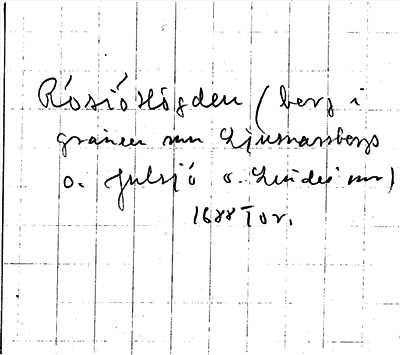 Rösjöhögden (berg i
gränsen mn Ljusnarsbergs
o. Hulsjö o. Lindes mn)
1688 Tor.